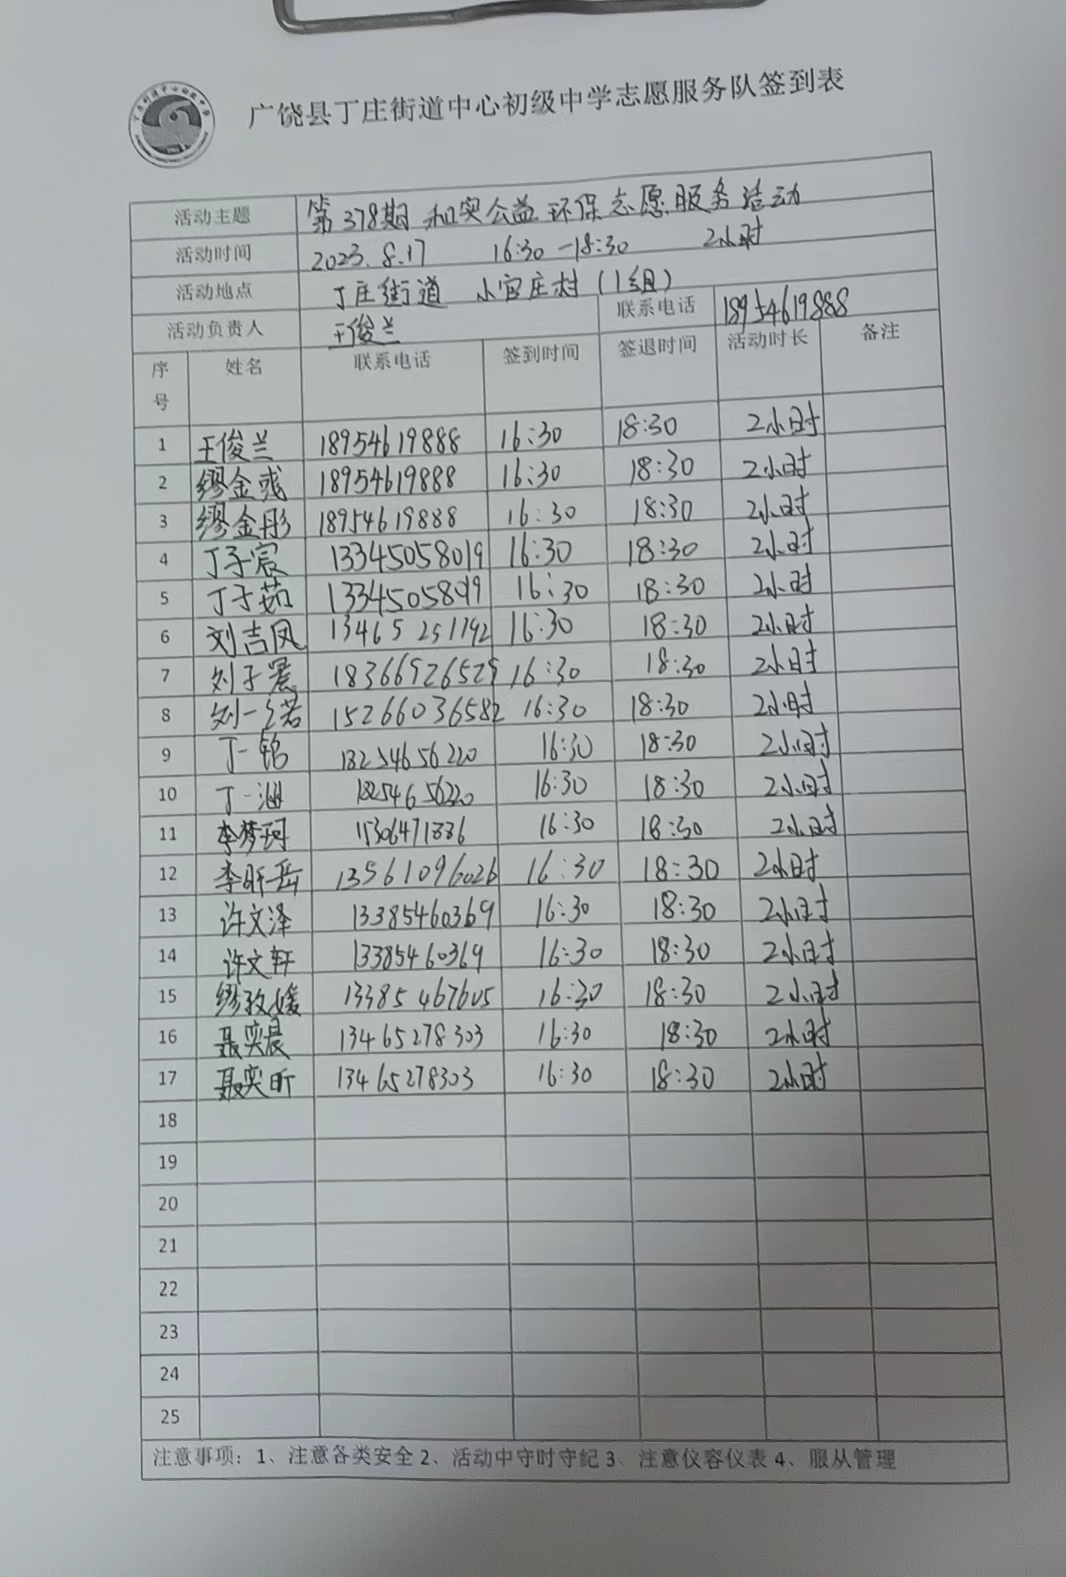 广饶县丁庄街道中心初级中学志愿服务队签到表
活动主题 第378期 和实公益 环保志愿服务活动
活动时间 2023.8.17 16:30-18:30 2小时
活动地点 丁庄街道 小官庄村(1组)
活动负责人 王俊兰 联系电话 18954619888
序号 姓名 联系电话 签到时间 签退时间 活动时长 备注
1 王俊兰 18954619888 16:30 18:30 2小时
2 缪金彧 18954619888 16:30 18:30 2小时
3 缪金彤 18954619888 16:30 18:30 2小时
4 丁子宸 13345058019 16:30 18:30 2小时
5 丁子茹 16:30 18:30 2小时
6 刘吉凤 13465251192 16:30 18:30 2小时
7 18366926529 16:30 18:30 2小时
8 15266036582 16:30 18:30 2小时
9 丁一铭 18254656220 16:30 18:30 2小时
10 丁一涵 18254656220 16:30 18:30 2小时
11 李梦珂 16:30 18:30 2小时
12 李昕岳 13561096026 16:30 18:30 2小时
13 许文泽 13385460369 16:30 18:30 2小时
14 许文轩 13385460369 16:30 18:30 2小时
15 缪孜媛 13385467605 16:30 18:30 2小时
16 聂奕晨 13465278303 16:30 18:30 2小时
17 聂奕昕 13465278303 16:30 18:30 2小时
18
19
20
21
22
23
24
25
注意事项：1、注意各类安全 2、活动中守时守纪 3、注意仪容仪表 4、服从管理